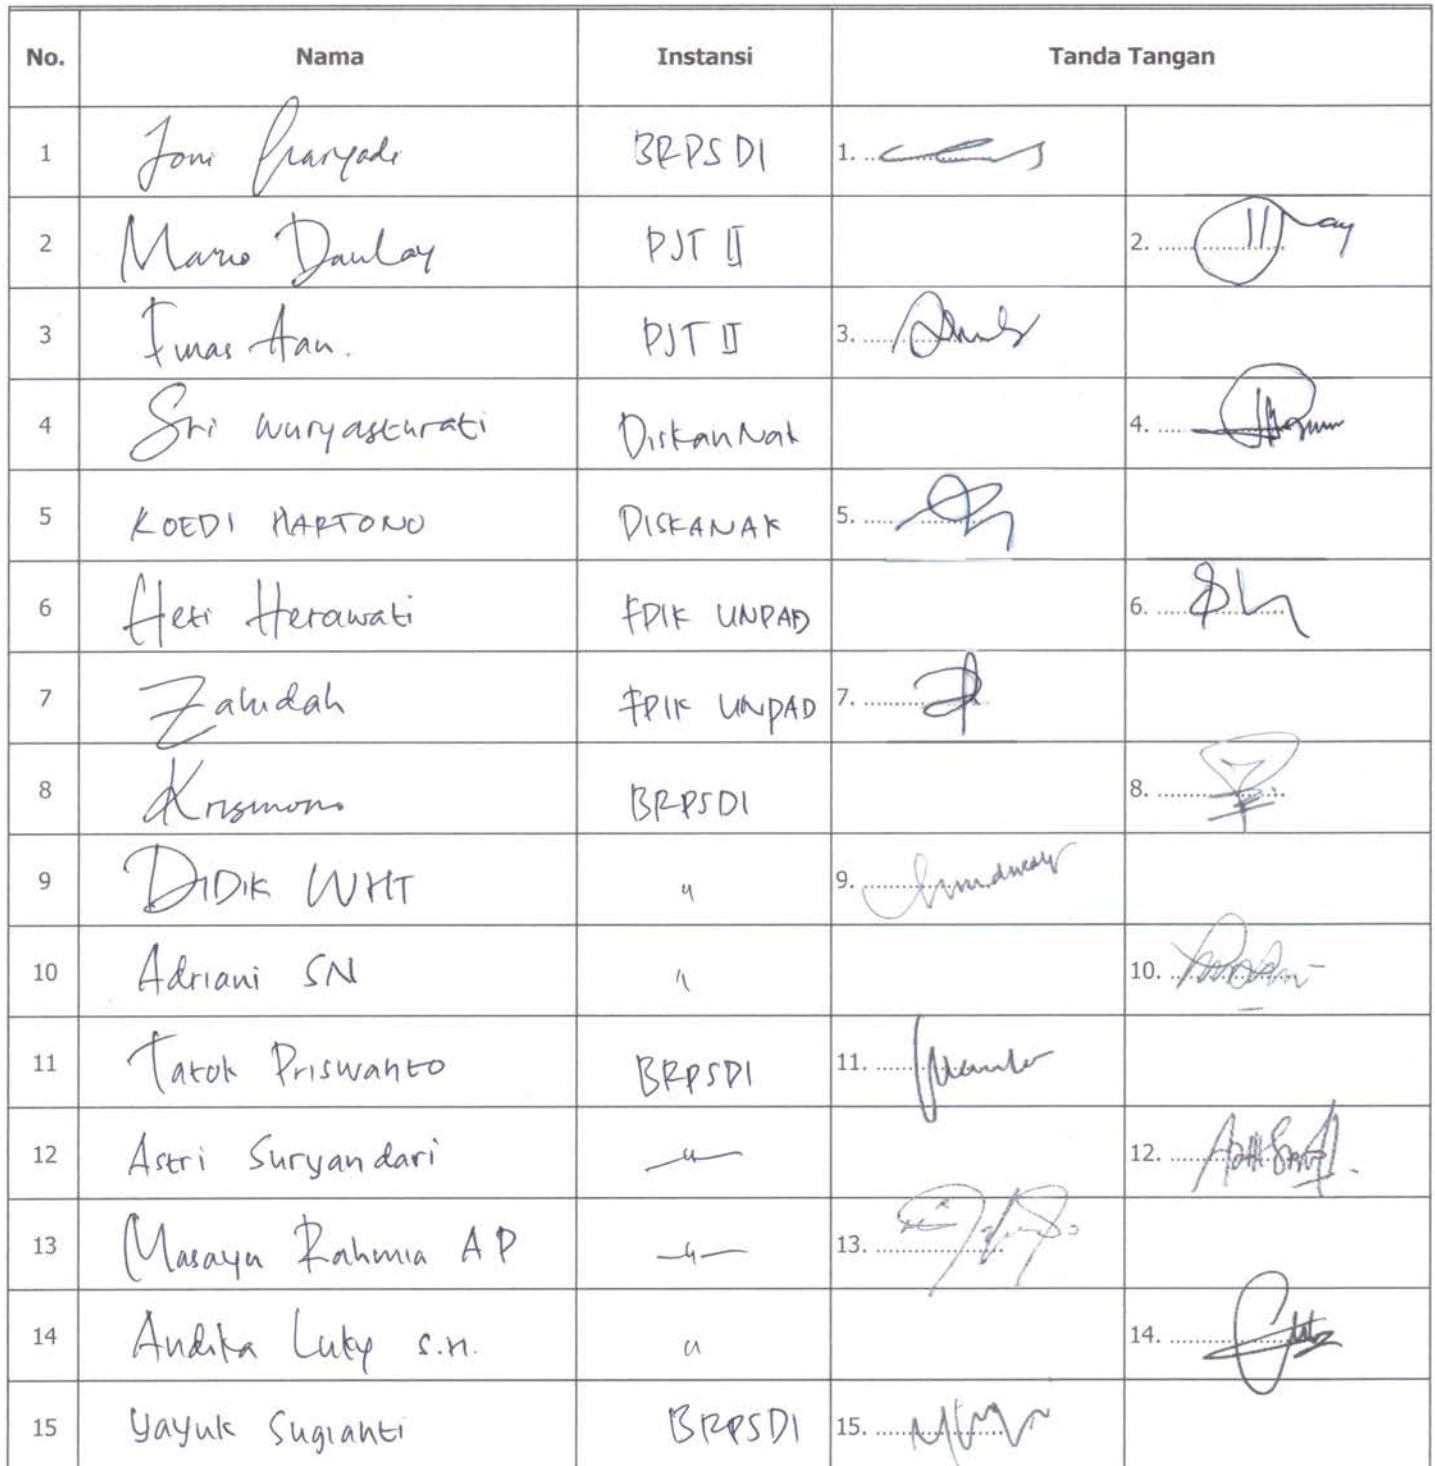 No. Nama Instansi Tanda Tangan
1 Joni Haryadi BRPSDI 1.
2 Mario Daulay PJT II 2.
3 Aan. PJT II 3.
4 Sri Wuryasturati DiskanNak 4.
5 KOEDI HARTONO DISKANAK 5.
6 Heti Herawati FPIK UNPAD 6.
7 Zahidah FPIK UNPAD 7.
8 Krismono BRPSDI 8.
9 DIDIK WHT " 9.
10 Adriani SN " 10.
11 Tatok Priswanto BRPSDI 11.
12 Astri Suryandari —"— 12.
13 Masayu Rahmia AP —"— 13.
14 Andika Luky s.n. " 14.
15 Yayuk Sugianti BRPSDI 15.